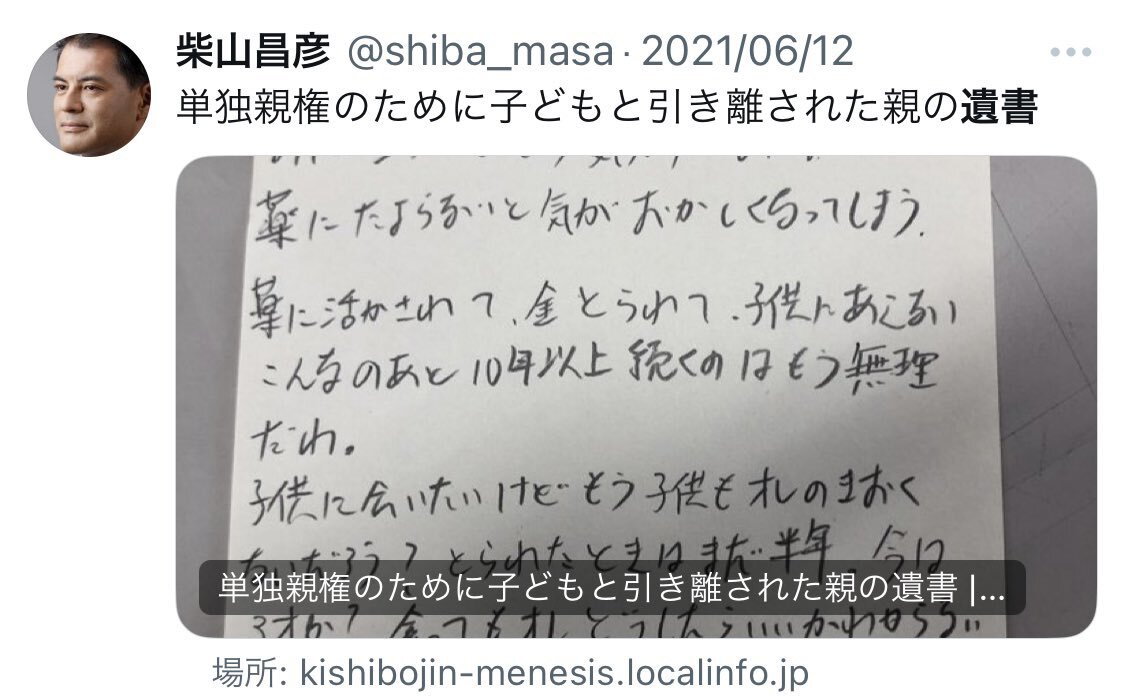 柴山昌彦 @shiba_masa · 2021/06/12
単独親権のために子どもと引き離された親の遺書
薬にたよらないと気がおかしくなってしまう.
薬に活かされて、金とられて、子供にあえない
こんなのあと10年以上続くのはもう無理
だわ。
子供に会いたいけどもう子供もオレのまおく
ないだろう? とられたときはまだ半年 今は
単独親権のために子どもと引き離された親の遺書 |...
3才か? 会ってもオレどうしたらいいかわからない
場所: kishibojin-menesis.localinfo.jp